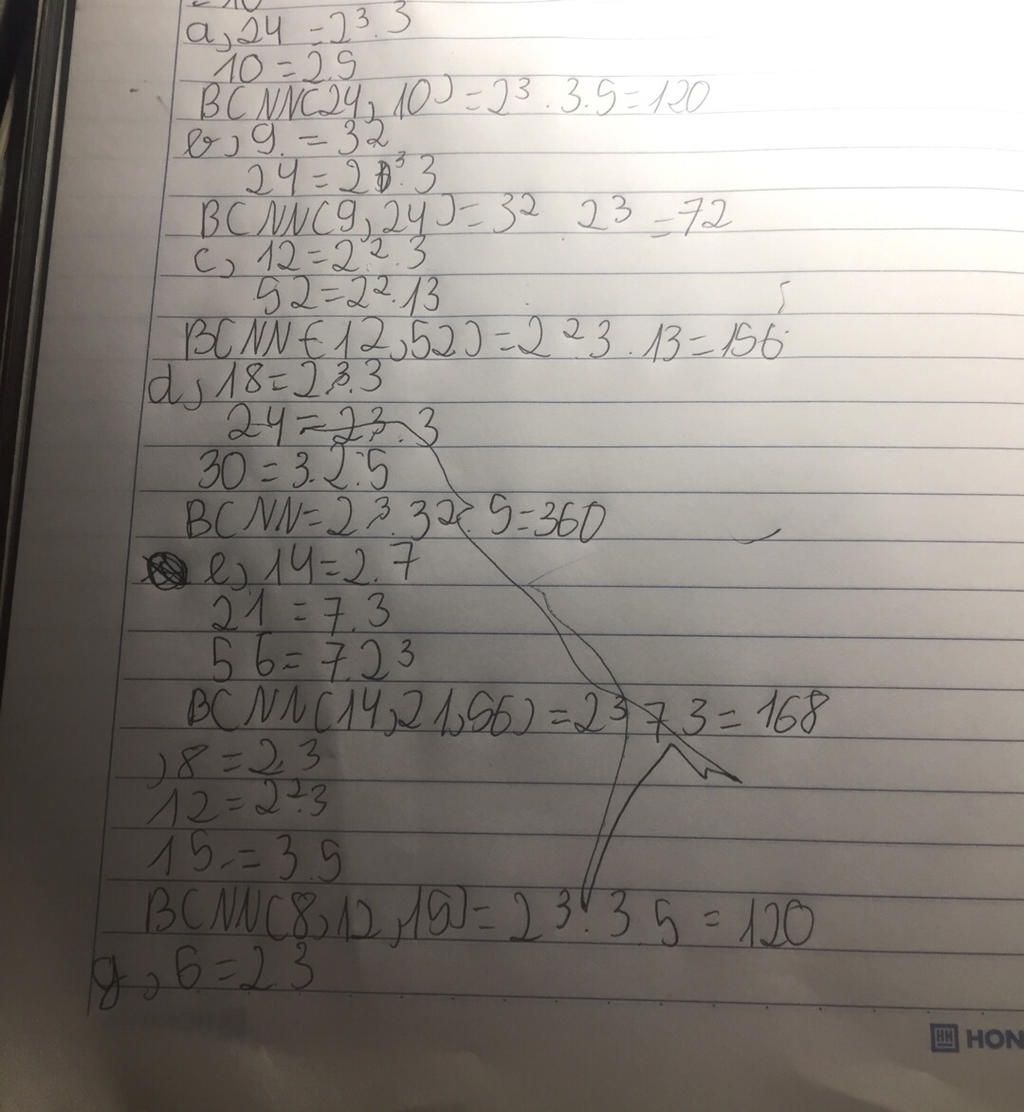 a, 24 = 2³.3
10 = 2.5
BCNN(24, 10) = 2³.3.5 = 120
b, 9 = 3²
24 = 2³.3
BCNN(9, 24) = 3² 2³ = 72
c, 12 = 2².3
52 = 2².13
BCNN(12, 52) = 2² 3.13 = 156
d, 18 = 2.3.3
24 = 2³.3
30 = 3.2.5
BCNN = 2³.3².5 = 360
e, 14 = 2.7
21 = 7.3
56 = 7.2³
BCNN(14, 21, 56) = 2³ 7 3 = 168
, 8 = 2³
12 = 2².3
15 = 3.5
BCNN(8, 12, 15) = 2³.3.5 = 120
g, 6 = 2.3
HON